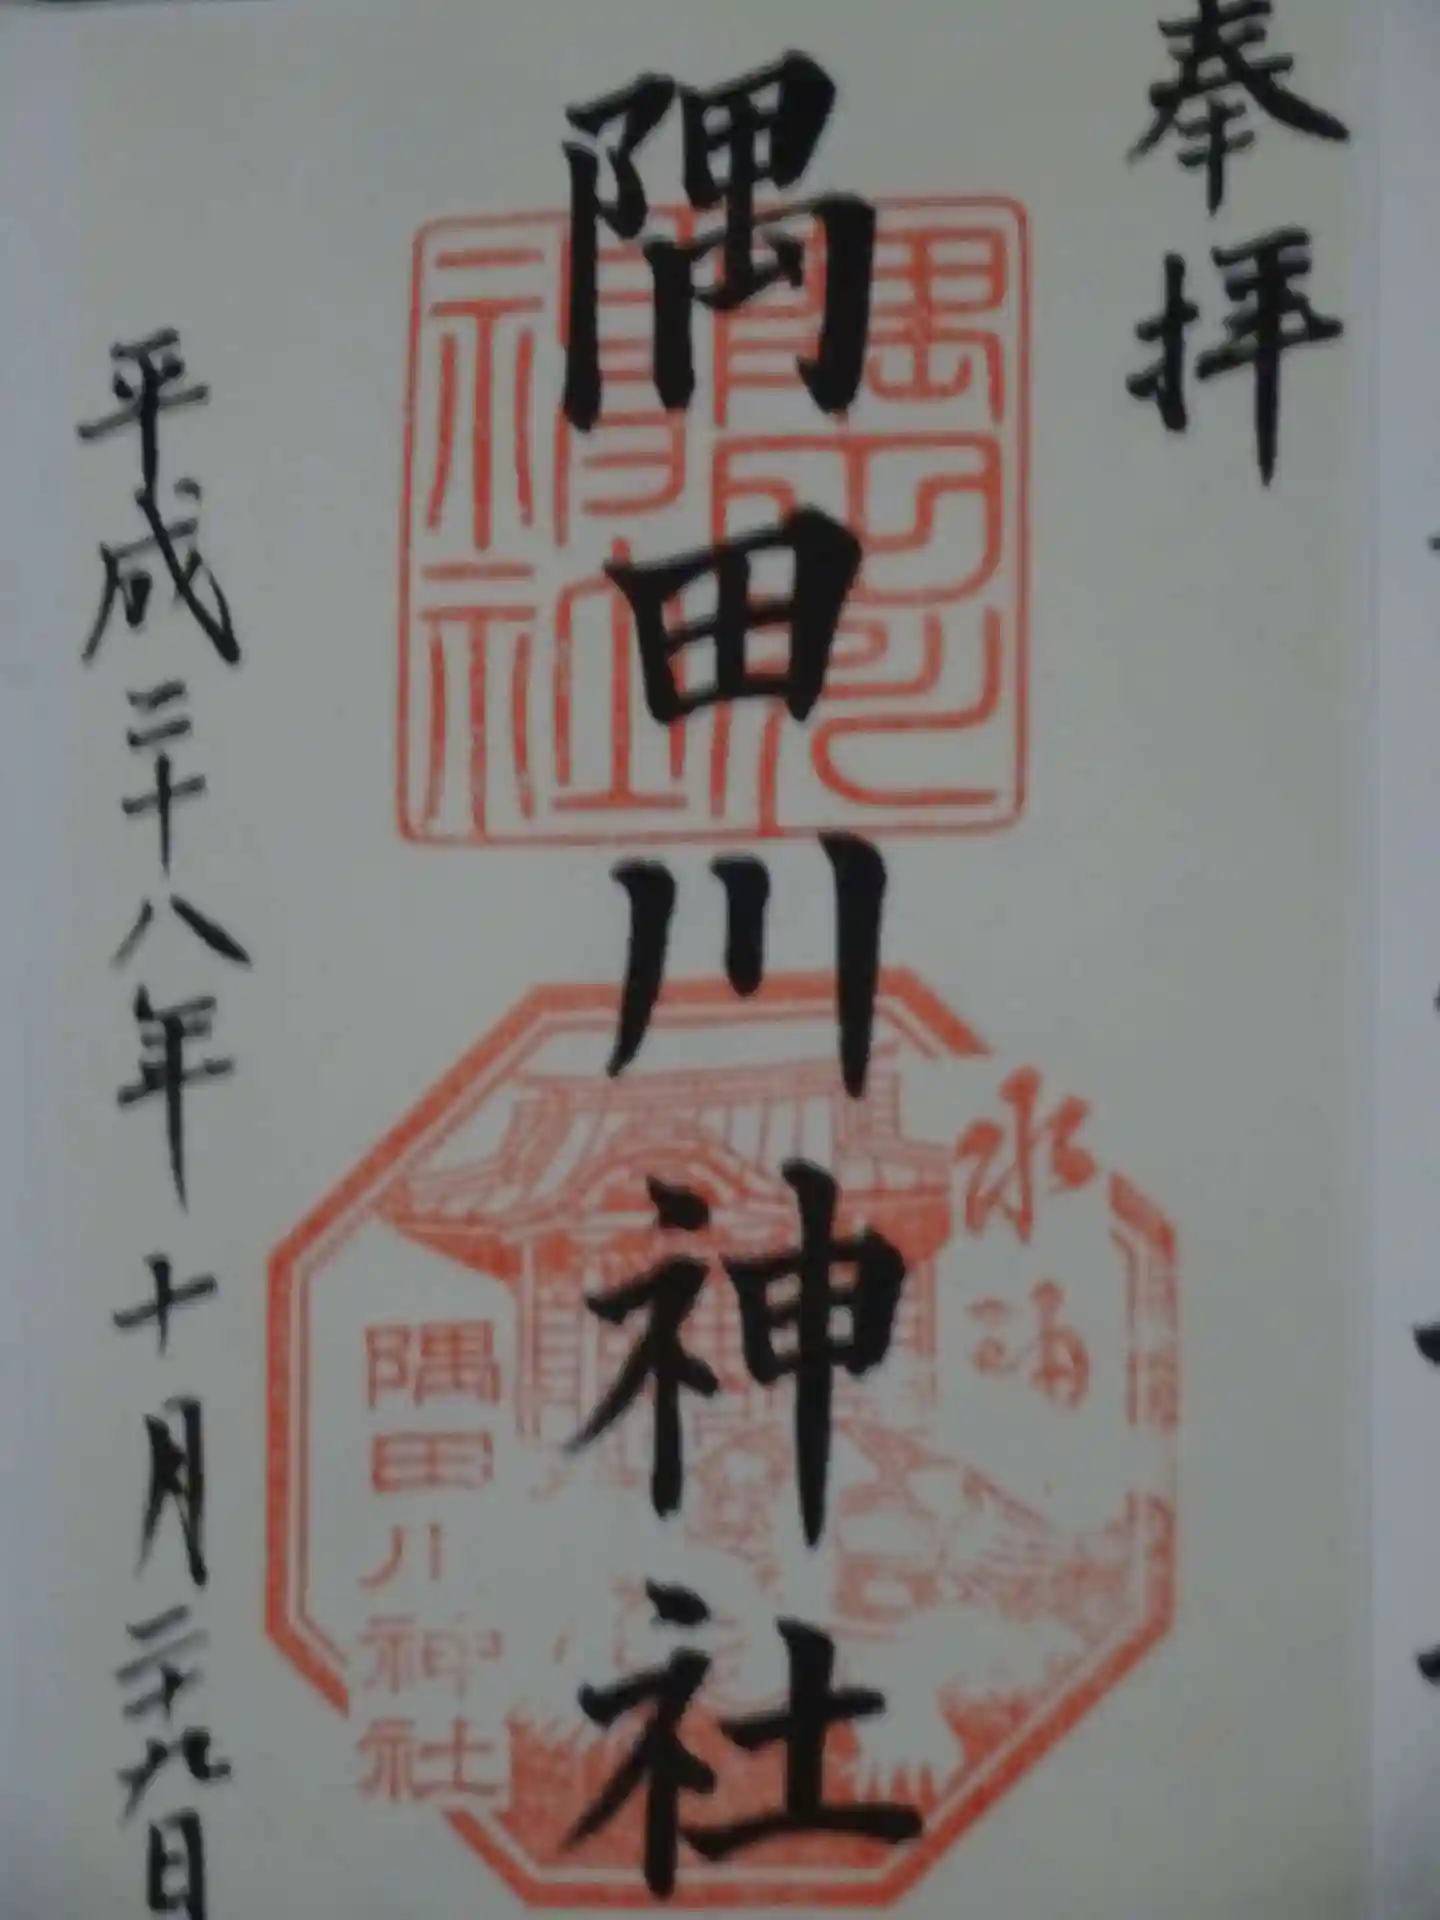 奉拝
隅田川神社
平成二十八年十月二十九日
隅田川神社
水
隅田川神社